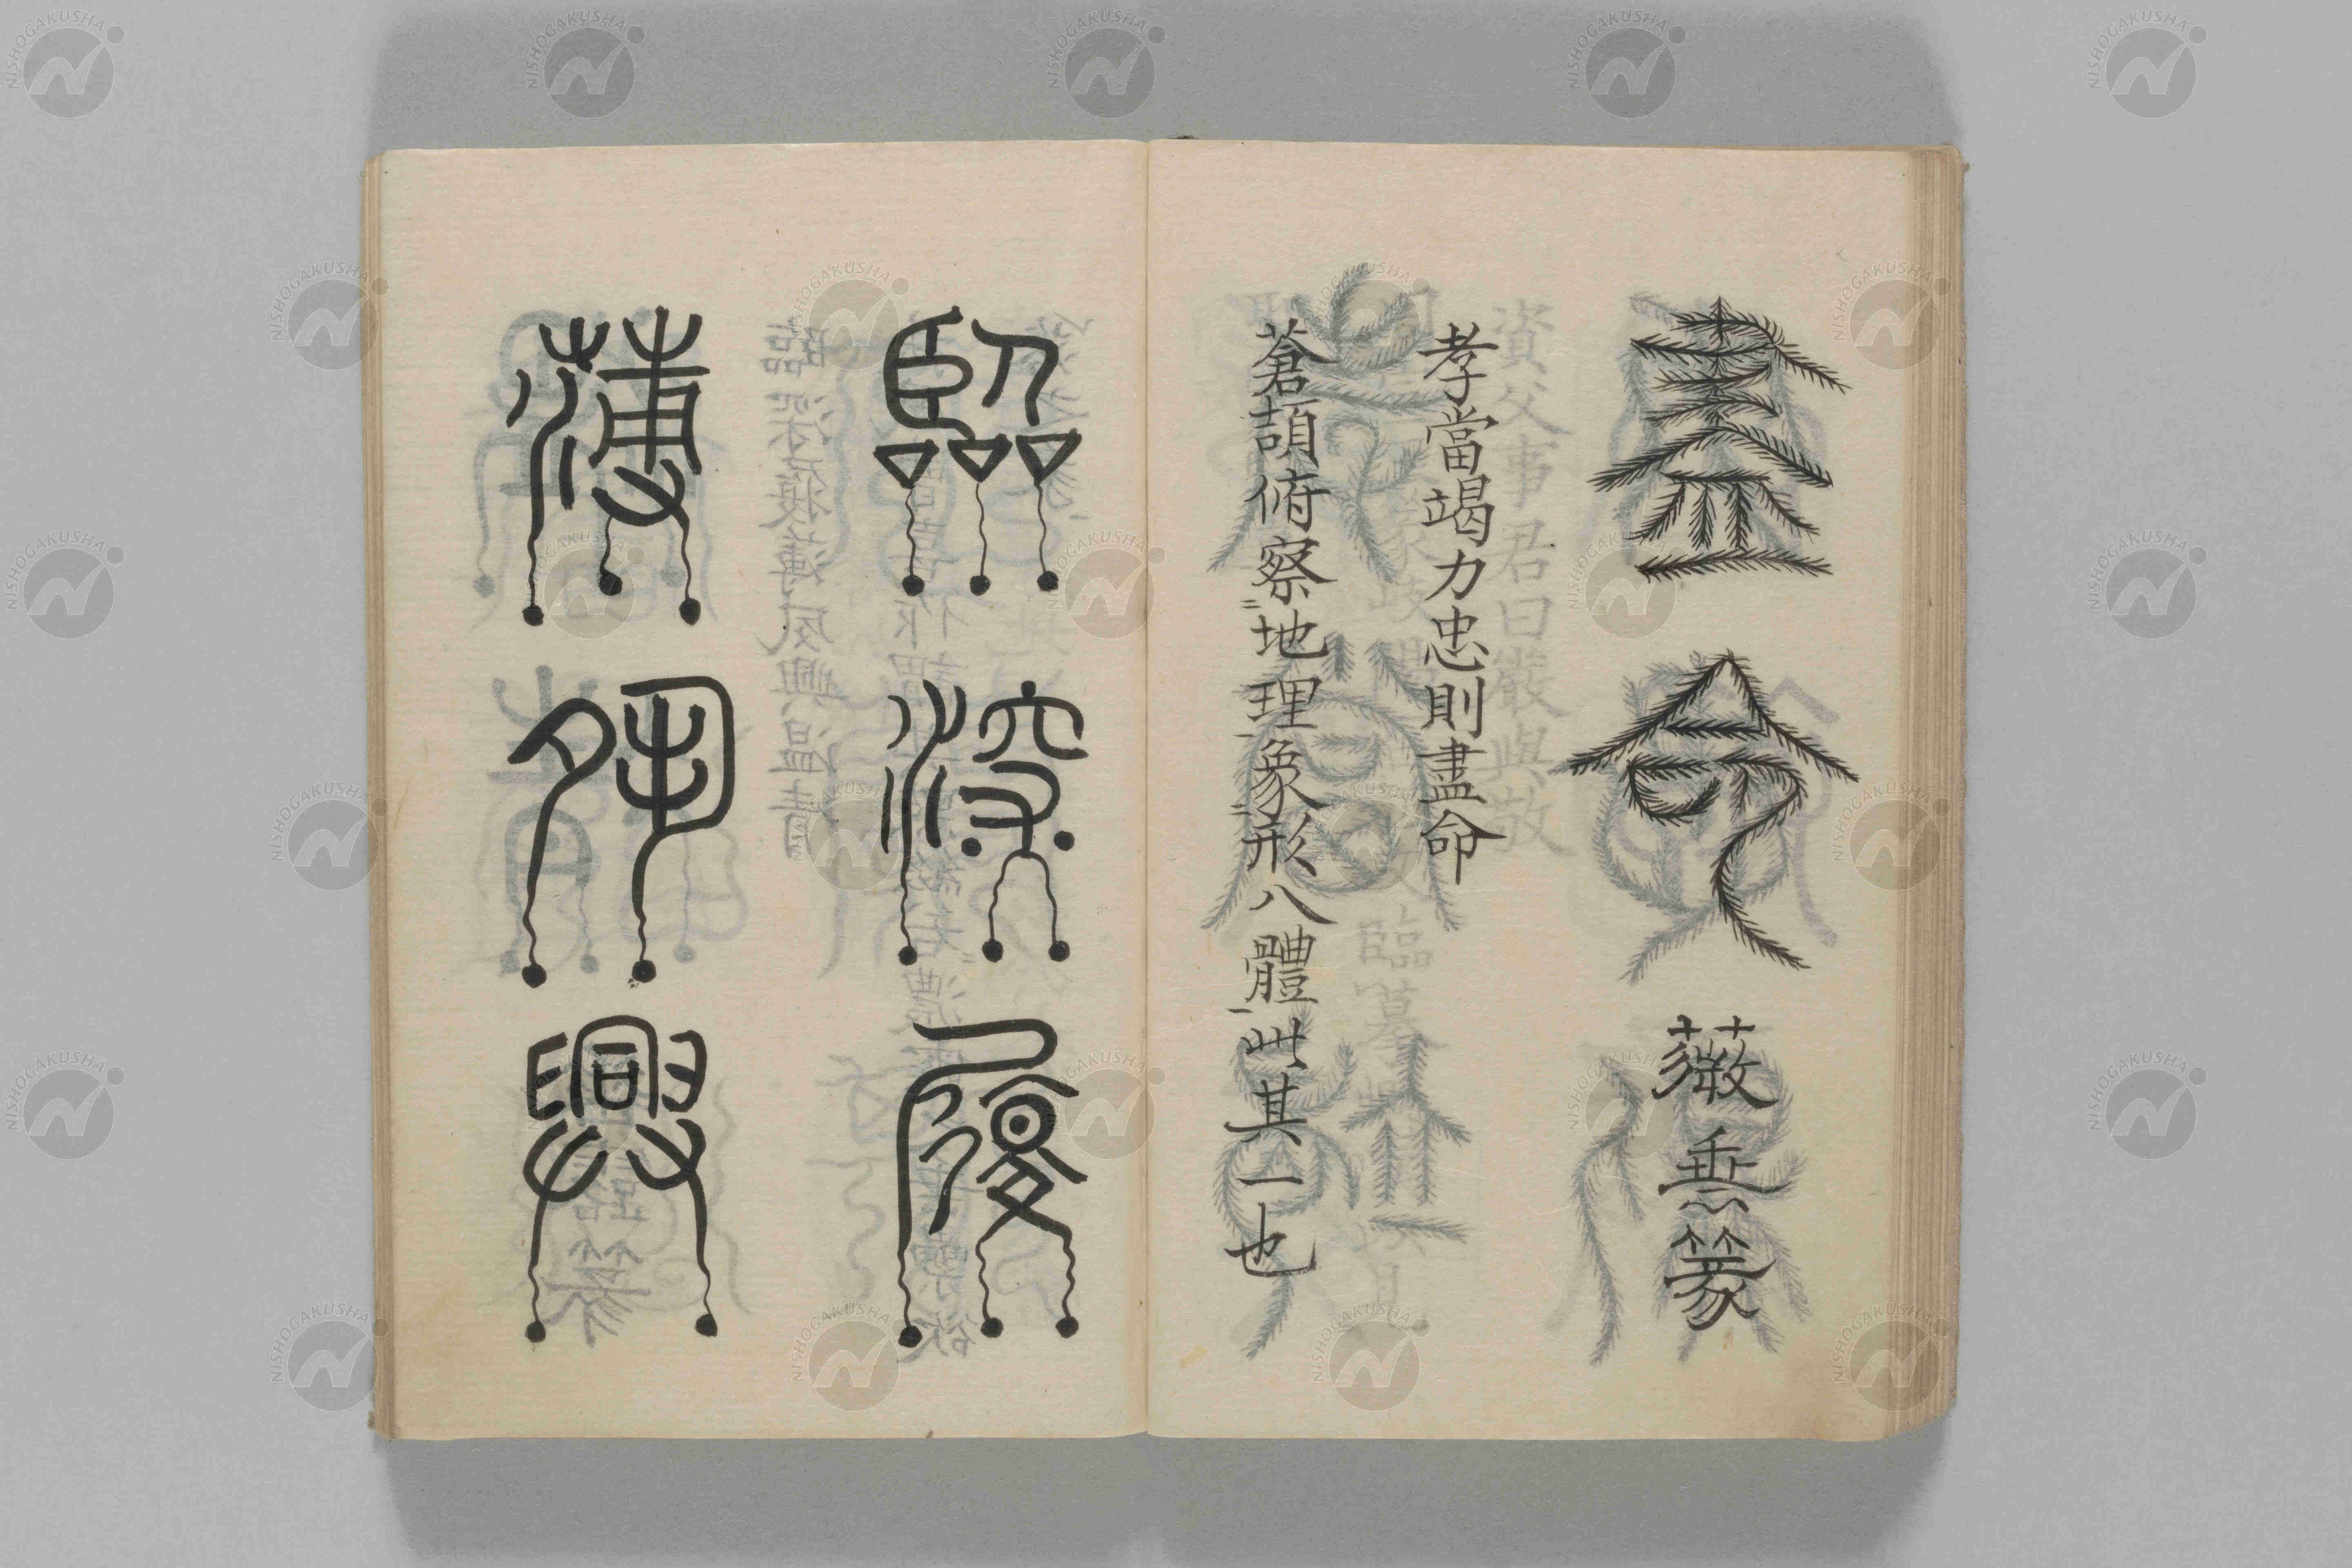 盡命
薇垂篆
孝當竭力忠則盡命
蒼頡俯察地理象形八體此其一也
臨深履
薄夙興
NISHOGAKUSHA